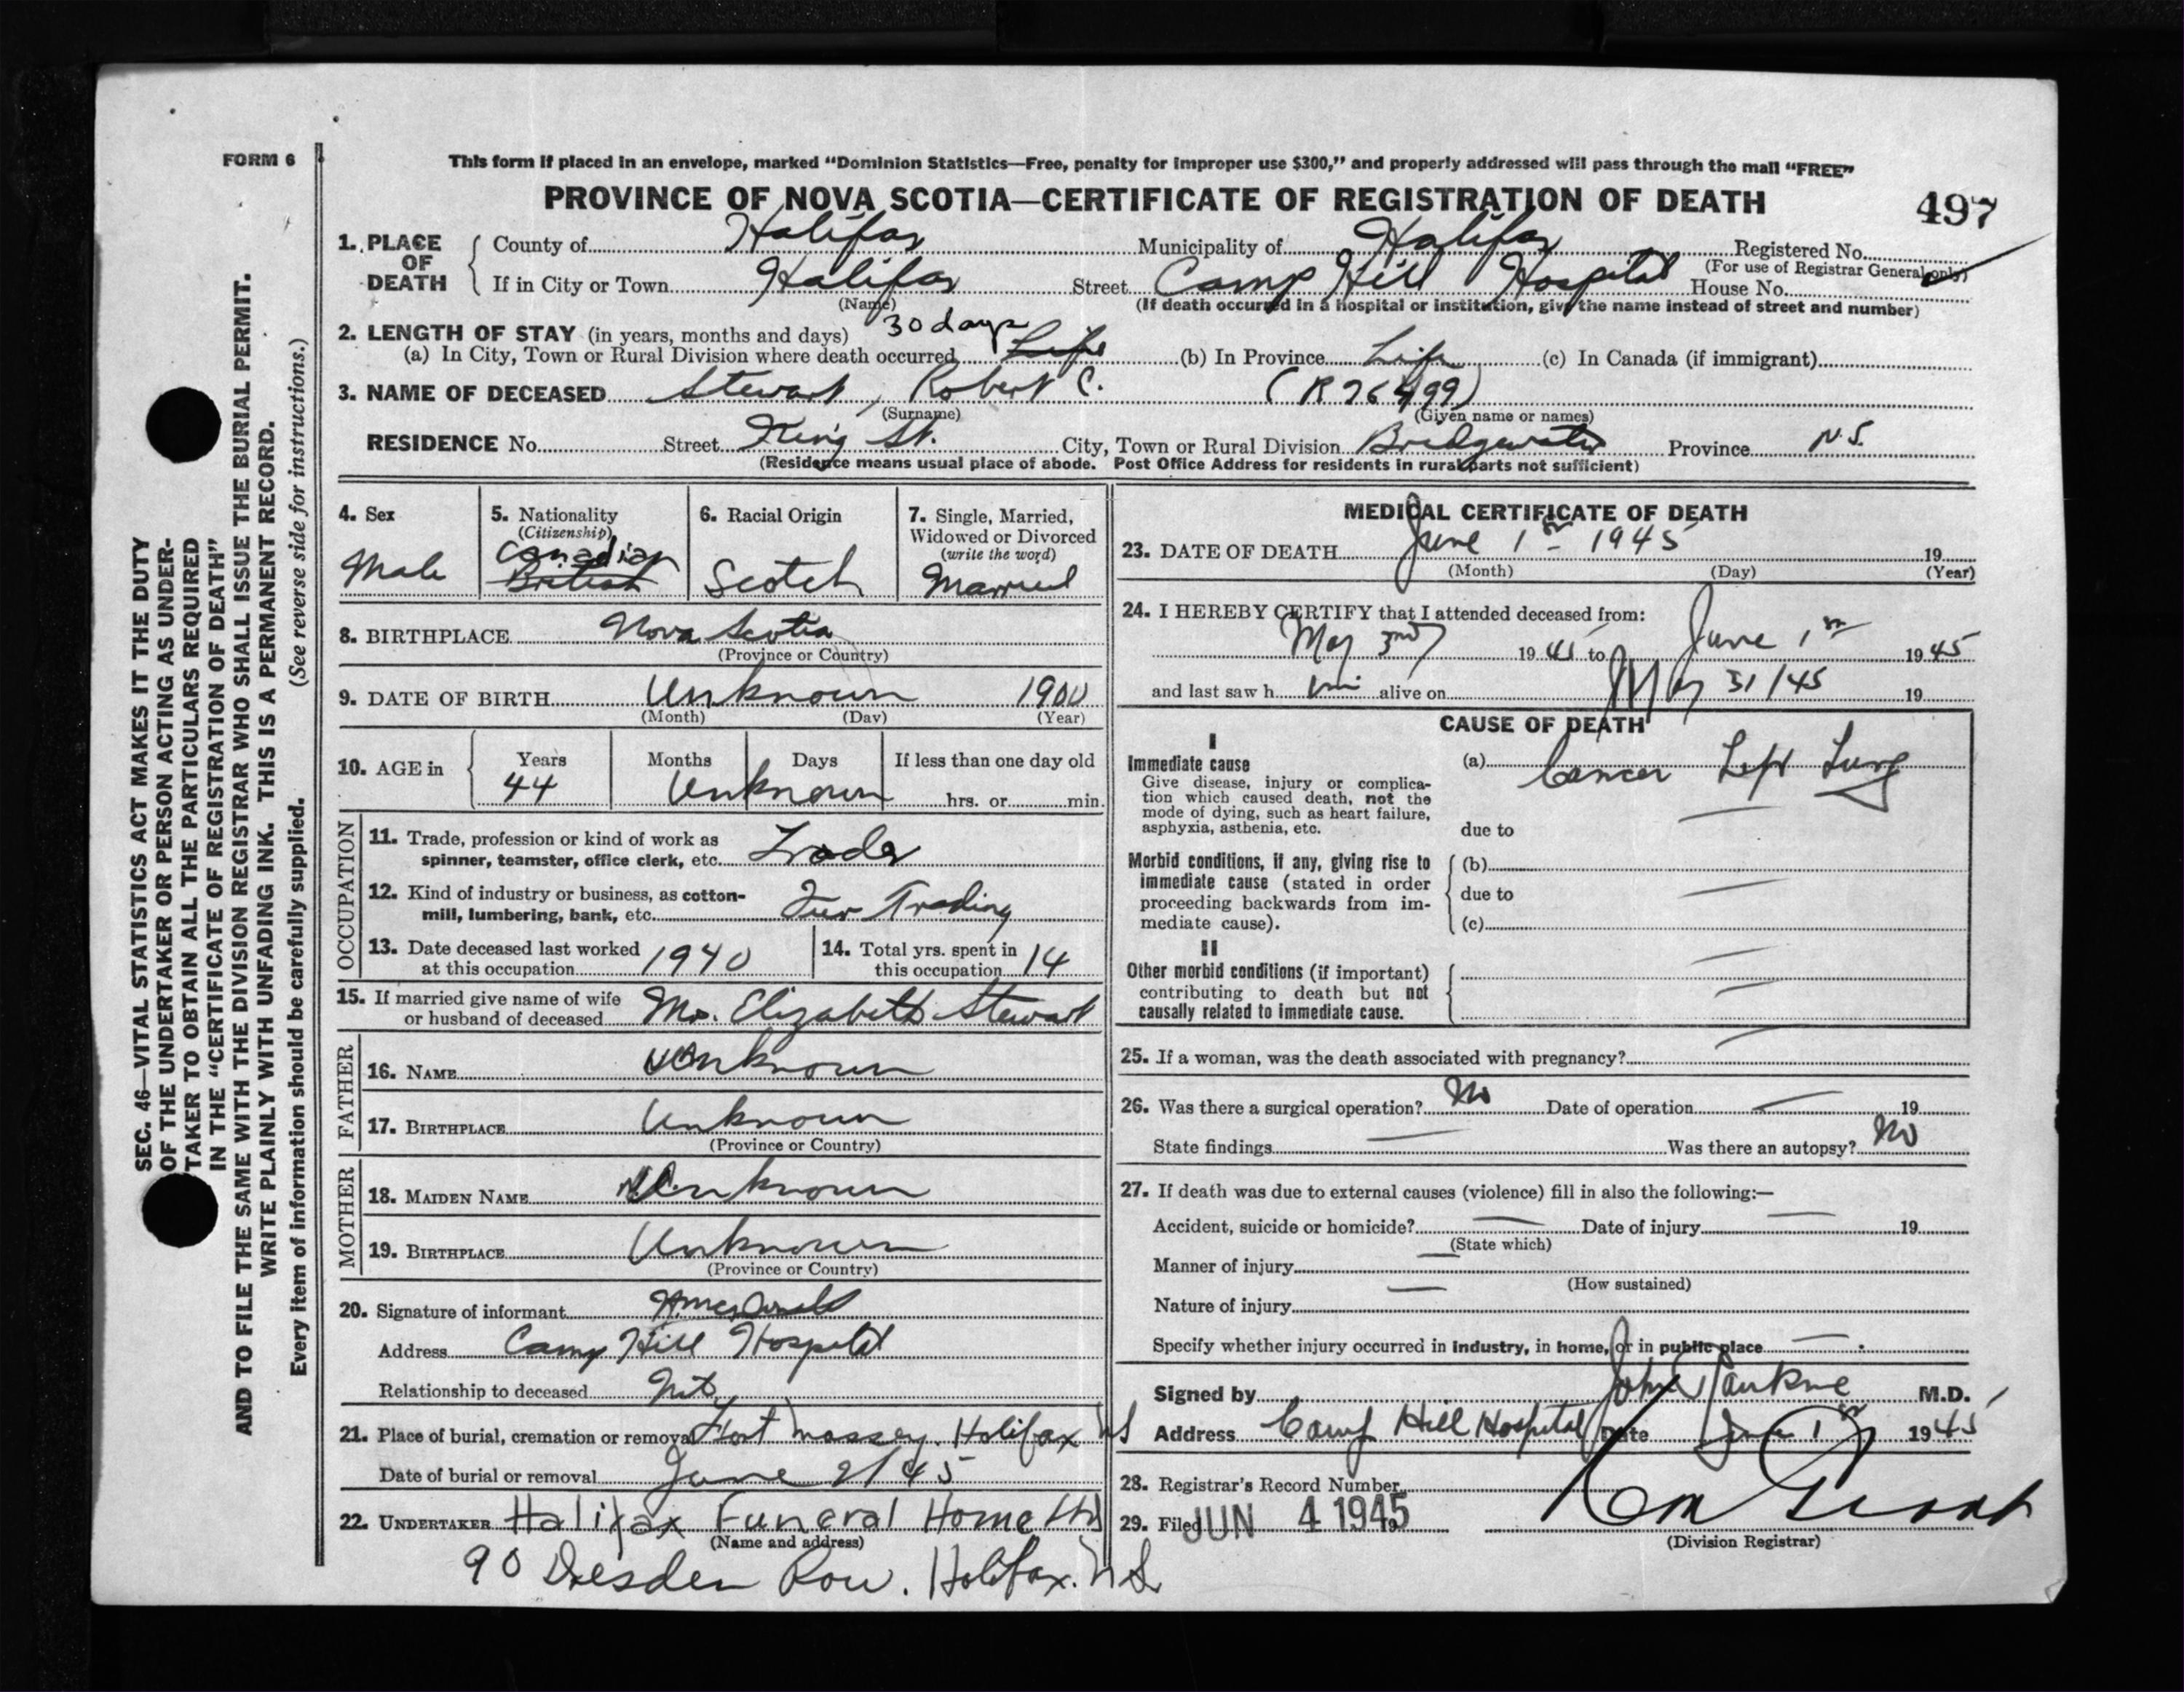 FORM 6
This form if placed in an envelope, marked "Dominion Statistics—Free, penalty for improper use $300," and properly addressed will pass through the mail "FREE"
PROVINCE OF NOVA SCOTIA—CERTIFICATE OF REGISTRATION OF DEATH
497
1. PLACE OF DEATH
County of Halifax Municipality of Halifax Registered No.
(For use of Registrar General only)
If in City or Town Halifax Street Camp Hill Hospital House No.
(Name) (If death occurred in a hospital or institution, give the name instead of street and number)
2. LENGTH OF STAY (in years, months and days) 30 days
(a) In City, Town or Rural Division where death occurred Life (b) In Province Life (c) In Canada (if immigrant)
3. NAME OF DECEASED Stewart, Robert C. (R 26499)
(Surname) (Given name or names)
RESIDENCE No. Street King St. City, Town or Rural Division Bridgewater Province N.S.
(Residence means usual place of abode. Post Office Address for residents in rural parts not sufficient)
4. Sex
Male
5. Nationality
(Citizenship)
Canadian
British
6. Racial Origin
Scotch
7. Single, Married,
Widowed or Divorced
(write the word)
Married
8. BIRTHPLACE Nova Scotia
(Province or Country)
9. DATE OF BIRTH Unknown 1900
(Month) (Day) (Year)
10. AGE in
Years Months Days If less than one day old
44 Unknown hrs. or min.
OCCUPATION
11. Trade, profession or kind of work as
spinner, teamster, office clerk, etc. Trader
12. Kind of industry or business, as cotton-
mill, lumbering, bank, etc. Fur Trading
13. Date deceased last worked
at this occupation 1940
14. Total yrs. spent in
this occupation 14
15. If married give name of wife
or husband of deceased Mrs. Elizabeth Stewart
FATHER
16. NAME Unknown
17. BIRTHPLACE Unknown
(Province or Country)
MOTHER
18. MAIDEN NAME Unknown
19. BIRTHPLACE Unknown
(Province or Country)
20. Signature of informant
Address Camp Hill Hospital
Relationship to deceased
21. Place of burial, cremation or removal Fort Massey. Halifax NS
Date of burial or removal June 2/45
22. UNDERTAKER Halifax Funeral Home Ltd
(Name and address)
90 Dresden Row. Halifax. N S
MEDICAL CERTIFICATE OF DEATH
23. DATE OF DEATH June 1st 1945 19
(Month) (Day) (Year)
24. I HEREBY CERTIFY that I attended deceased from:
May 3rd 1945 to June 1st 1945
and last saw h im alive on May 31/45 19
CAUSE OF DEATH
I
Immediate cause
Give disease, injury or complica-
tion which caused death, not the
mode of dying, such as heart failure,
asphyxia, asthenia, etc.
(a) Cancer Left Lung
due to
Morbid conditions, if any, giving rise to
immediate cause (stated in order
proceeding backwards from im-
mediate cause).
(b)
due to
(c)
II
Other morbid conditions (if important)
contributing to death but not
causally related to immediate cause.
25. If a woman, was the death associated with pregnancy?
26. Was there a surgical operation? No Date of operation — 19
State findings — Was there an autopsy? No
27. If death was due to external causes (violence) fill in also the following:—
Accident, suicide or homicide? — Date of injury — 19
(State which)
Manner of injury —
(How sustained)
Nature of injury —
Specify whether injury occurred in industry, in home, or in public place —
Signed by John M.D.
Address Camp Hill Hospital Date June 1st 1945
28. Registrar's Record Number
29. Filed JUN 4 1945
(Division Registrar)
SEC. 46—VITAL STATISTICS ACT MAKES IT THE DUTY
OF THE UNDERTAKER OR PERSON ACTING AS UNDER-
TAKER TO OBTAIN ALL THE PARTICULARS REQUIRED
IN THE "CERTIFICATE OF REGISTRATION OF DEATH"
AND TO FILE THE SAME WITH THE DIVISION REGISTRAR WHO SHALL ISSUE THE BURIAL PERMIT.
WRITE PLAINLY WITH UNFADING INK. THIS IS A PERMANENT RECORD.
Every item of information should be carefully supplied. (See reverse side for instructions.)